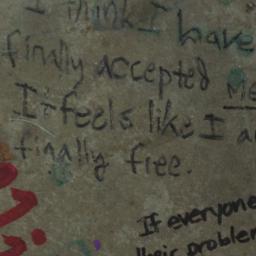 I think I have
finally accepted Me
It feels like I a
finally free.
If everyone
their problem